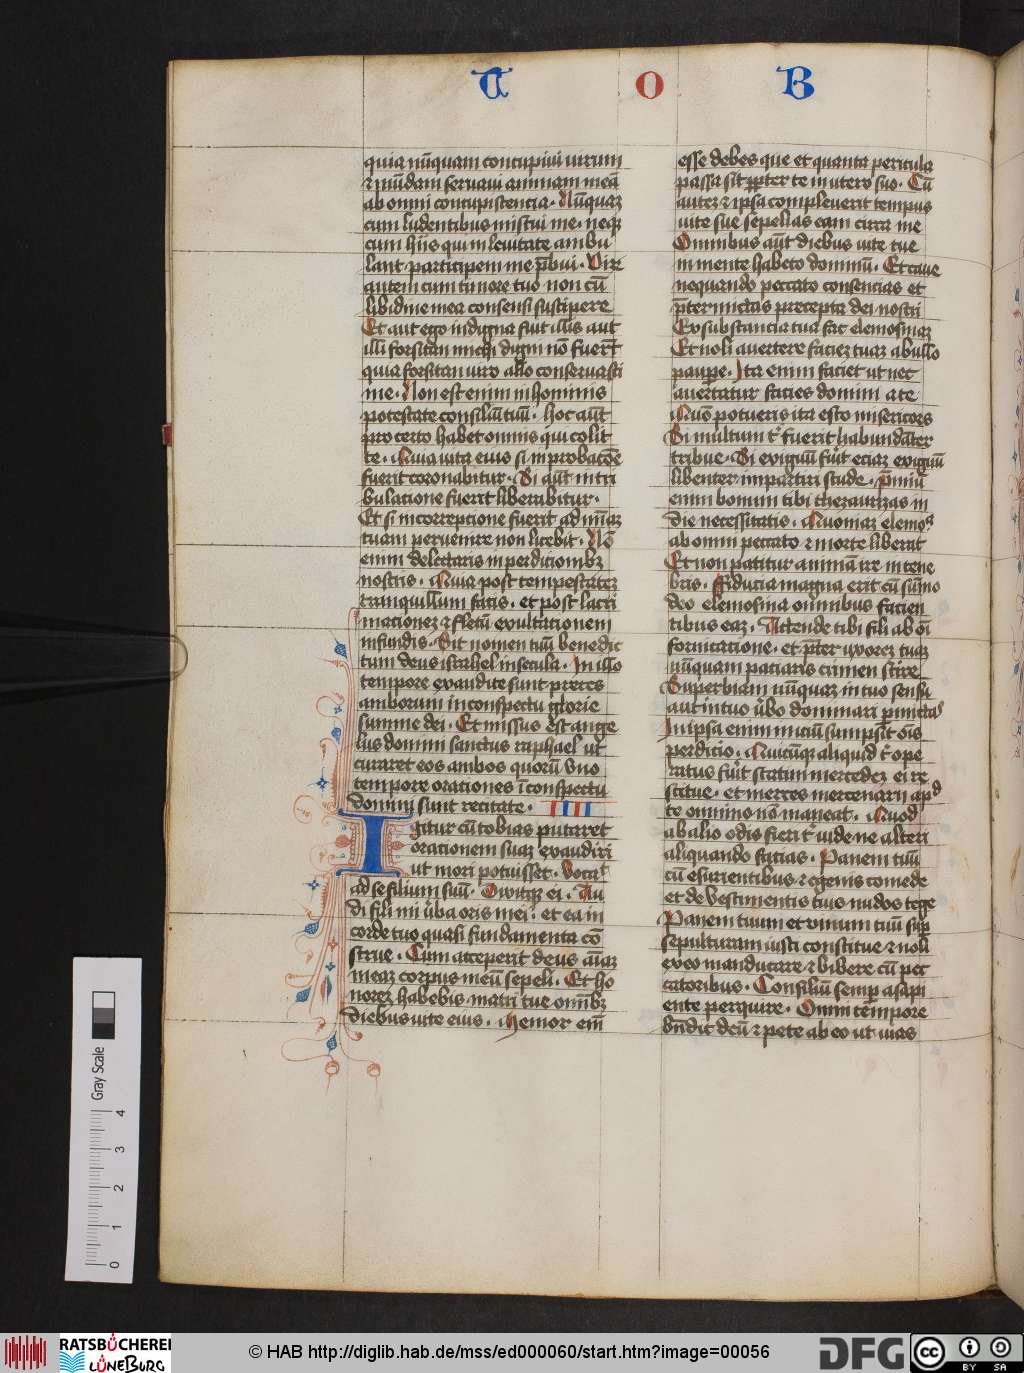 T O B
quia nu̅quam concupiui uirum
⁊ mu̅dam seruaui animam mea̅
ab omni concupiscencia · Nu̅quaȝ
cum ludentibus miscui me · neqȝ
cum hijs qui in leuitate ambu
lant participem me p̅bui · Viꝝ
autem cum timore tuo non cu̅
libidine mea consensi suscipere
Et aut ego indigna fui illis aut
illi forsitan michi digni no̅ fuer̅t
quia forsitan uiro alio conseruasti
me · Non est enim in hominis
potestate consiliu̅ tuu̅ · hoc aut̅
pro certo habet omnis qui colit
te · Quia uita eius si in probac̅oe̅
fuerit coronabitur · Si aut̅ in tri
bulacione fuerit liberabitur ·
Et si in correpcione fuerit ad mi̅aȝ
tuam peruenire non licebit · No̅
enim delectaris in perdicionibȝ
nostris · Quia post tempestateȝ
tranquillum facis · et post lacri
macioneȝ ⁊ fletu̅ exultacionem
infundis · Sit nomen tuu̅ benedic
tum deus israhel in secula · In illo
tempore exaudite sunt preces
amborum in conspectu glorie
summe dei · Et missus est ange
lus domini sanctus raphael ut
curaret eos ambos quoru̅ vno
tempore orationes i̅ conspectu
domini sunt recitate · IIII
Igitur cu̅ tobias putaret
orationem suaȝ exaudiri
ut mori potuisset · Vocat̅
ad se filium suu̅ · Dixitqȝ ei · Au
di fili mi u̅ba oris mei · et ea in
corde tuo quasi fundamenta co̅
strue · Cum acceperit deus a̅iaȝ
meaȝ corpus meu̅ sepeli · Et ho
noreȝ habebis matri tue omi̅bȝ
diebus uite eius · Memor eni̅
esse debes que et quanta pericula
passa sit pp̅ter te in utero suo · Cu̅
auteȝ ⁊ ipsa compleuerit tempus
uite sue sepelias eam circa me
Omnibus aut̅ diebus uite tue
in mente habeto dominu̅ · Et caue
nequando peccato consencias et
p̅termictas precepta dei nostri
Ex substancia tua fac elemosinaȝ
Et noli auertere facieȝ tuaȝ ab ullo
paupe̅ · Ita enim faciet ut nec
auertatur facies domini a te
Quo̅ potueris ita esto misericors
Si multum t̅ fuerit habunda̅ter
tribue · Si exiguu̅ fu̅it eciaȝ exiguu̅
libenter impartiri stude · p̅miu̅
enim bonum tibi thezaurizas in
die necessitatis · Quoniaȝ elemos̅
ab omni peccato ⁊ morte liberat
Et non patitur anima̅ ire in tene
bris · Fiducia magna erit cu̅ su̅mo
deo elemosina omnibus facien
tibus eaȝ · Attende tibi fili ab oi̅
fornicatione · et p̅ter uxoreȝ tuaȝ
nu̅quam paciaris crimen scire
Superbiam nu̅quaȝ in tuo sensu
aut in tuo u̅bo dominari p̅mictas
In ipsa enim iniciu̅ sumpsit o̅is
perdicio · Quicu̅qȝ aliquid t̅ ope
ratus fu̅it statim mercedeȝ ei re
stitue · et merces mercenarii apd̅
te omnino no̅ maneat · Quod
ab alio odis fieri t̅ uide ne alteri
aliquando facias · Panem tuu̅
cu̅ esurientibus ⁊ egenis comede
et de vestimentis tuis nudos tege
Panem tuum et vinum tuu̅ sup̅
sepulturam iusti constitue ⁊ noli
ex eo manducare ⁊ bibere cu̅ pec
catoribus · Consiliu̅ semp̅ a sapi
ente perquire · Omni tempore
bn̅dic deu̅ ⁊ pete ab eo ut uias
Gray Scale
0 1 2 3 4
RATSBÜCHEREI
LÜNEBURG
© HAB http://diglib.hab.de/mss/ed000060/start.htm?image=00056
DFG
cc BY SA